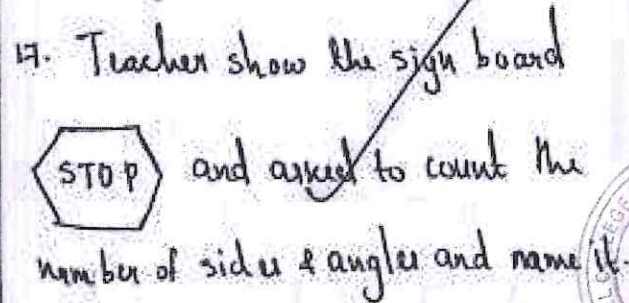 17. Teacher show the sign board
STOP and asked to count the
number of sides & angles and name it.